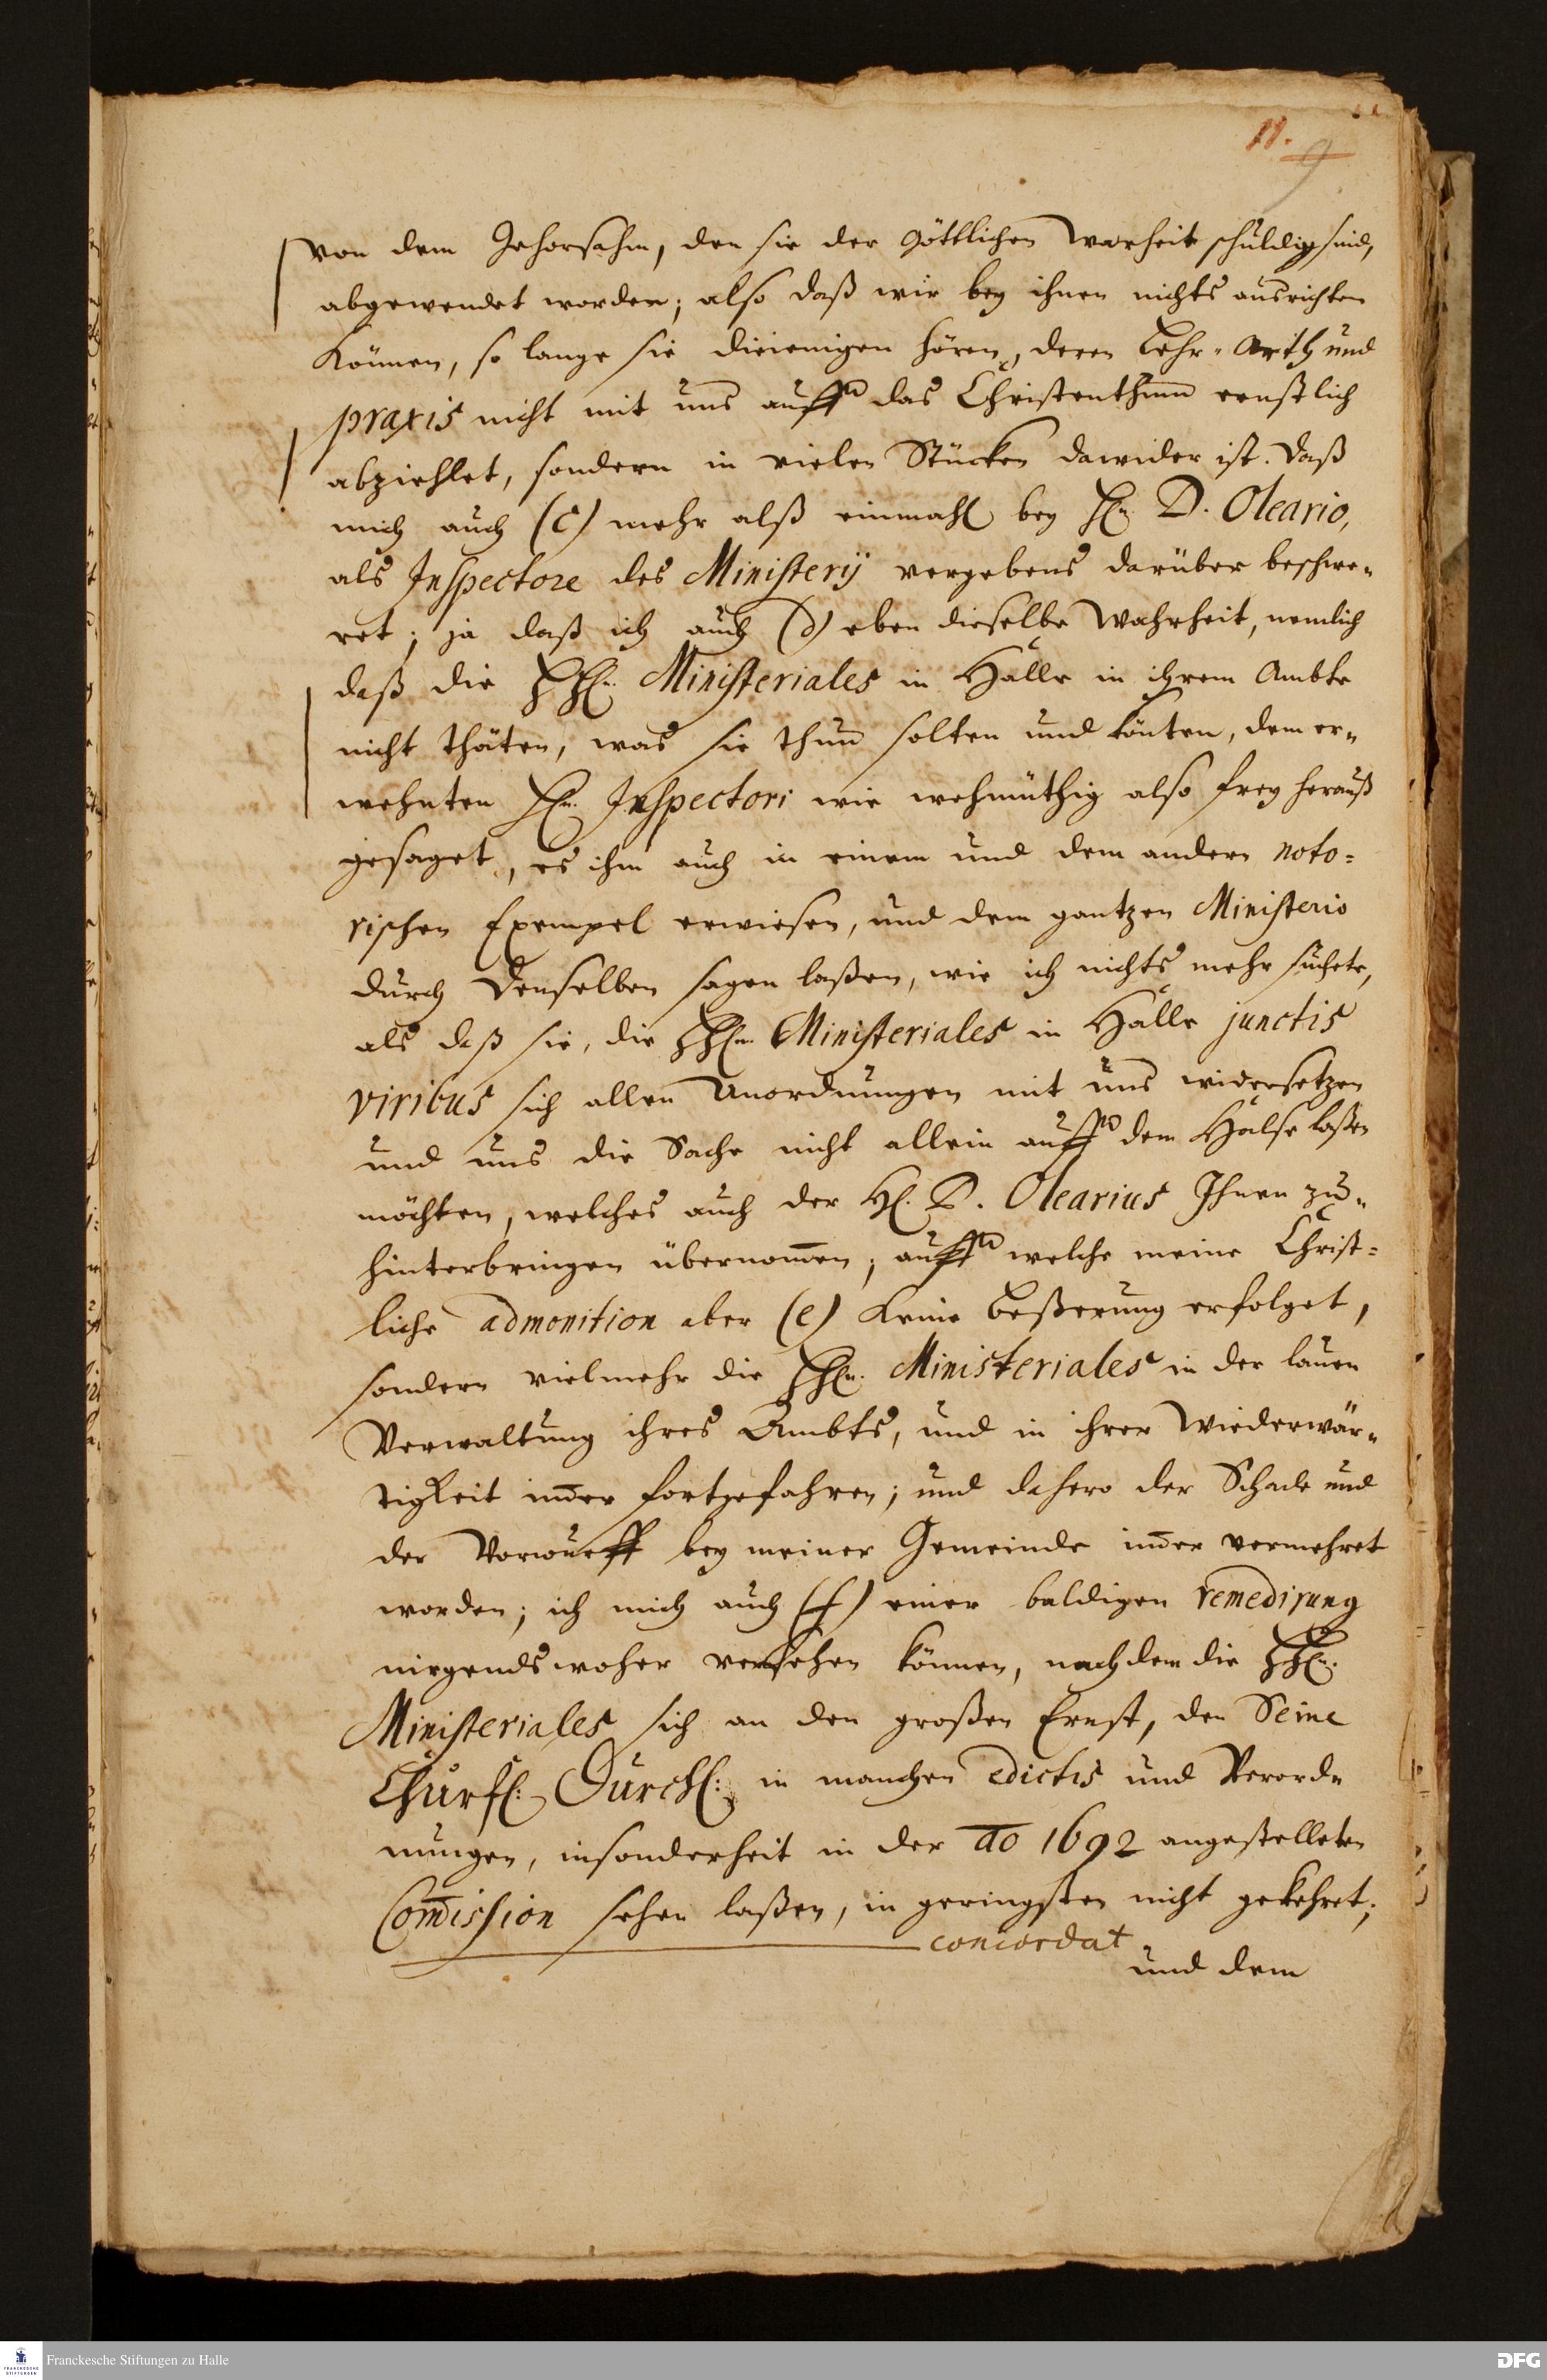 11. 9
von dem Gehorsahm, den sie der Göttlichen Warheit schuldig sind,
abgewendet worden; also daß wir bey ihnen nichts ausrichten
Können, so lange sie diejenigen hören, deren Lehr-Arth und
praxis nicht mit uns auff das Christenthum ernstlich
abziehlet, sondern in vielen Stücken dawider ist. Daß
mich auch (c) mehr alß einmahl bey Hn. D. Oleario,
als Inspectore des Ministerij vergebens darüber beschwe-
ret; ja daß ich auch (d) eben dieselbe Wahrheit, nemlich
daß die HHn. Ministeriales in Halle in ihrem Ambte
nicht thäten, was sie thun solten und könten, dem er-
wehnten Hn. Inspectori wie wehmüthig also frey herauß
gesaget, es ihm auch in einem und dem andern noto-
rischen Exempel erwiesen, und dem gantzen Ministerio
durch Denselben sagen laßen, wie ich nichts mehr suchete,
als daß sie, die HHn. Ministeriales in Halle junctis
viribus sich allen Unordnungen mit uns widersetzen
und uns die Sache nicht allein auff dem Halse laßen
möchten, welches auch der H. D. Olearius Ihnen zu-
hinterbringen übernom̄en; auff welche meine Christ-
liche admonition aber (e) Keine beßerung erfolget,
sondern vielmehr die HHn. Ministeriales in der lauen
Verwaltung ihres Ambts, und in ihrer Wiederwär-
tigkeit im̄er fortgefahren; und dahero der Schade und
der Vorwurff bey meiner Gemeinde im̄er vermehret
worden; ich mich auch (f) einer baldigen remedirung
nirgends woher versehen können, nachdem die HHn.
Ministeriales sich an den großen Ernst, den Seine
Churfl: Durchl: in manchen edictis und Verord-
nungen, insonderheit in der ao 1692 angestelleten
Com̄ission sehen laßen, in geringsten nicht gekehret;
concordat
und dem
Franckesche Stiftungen zu Halle
DFG